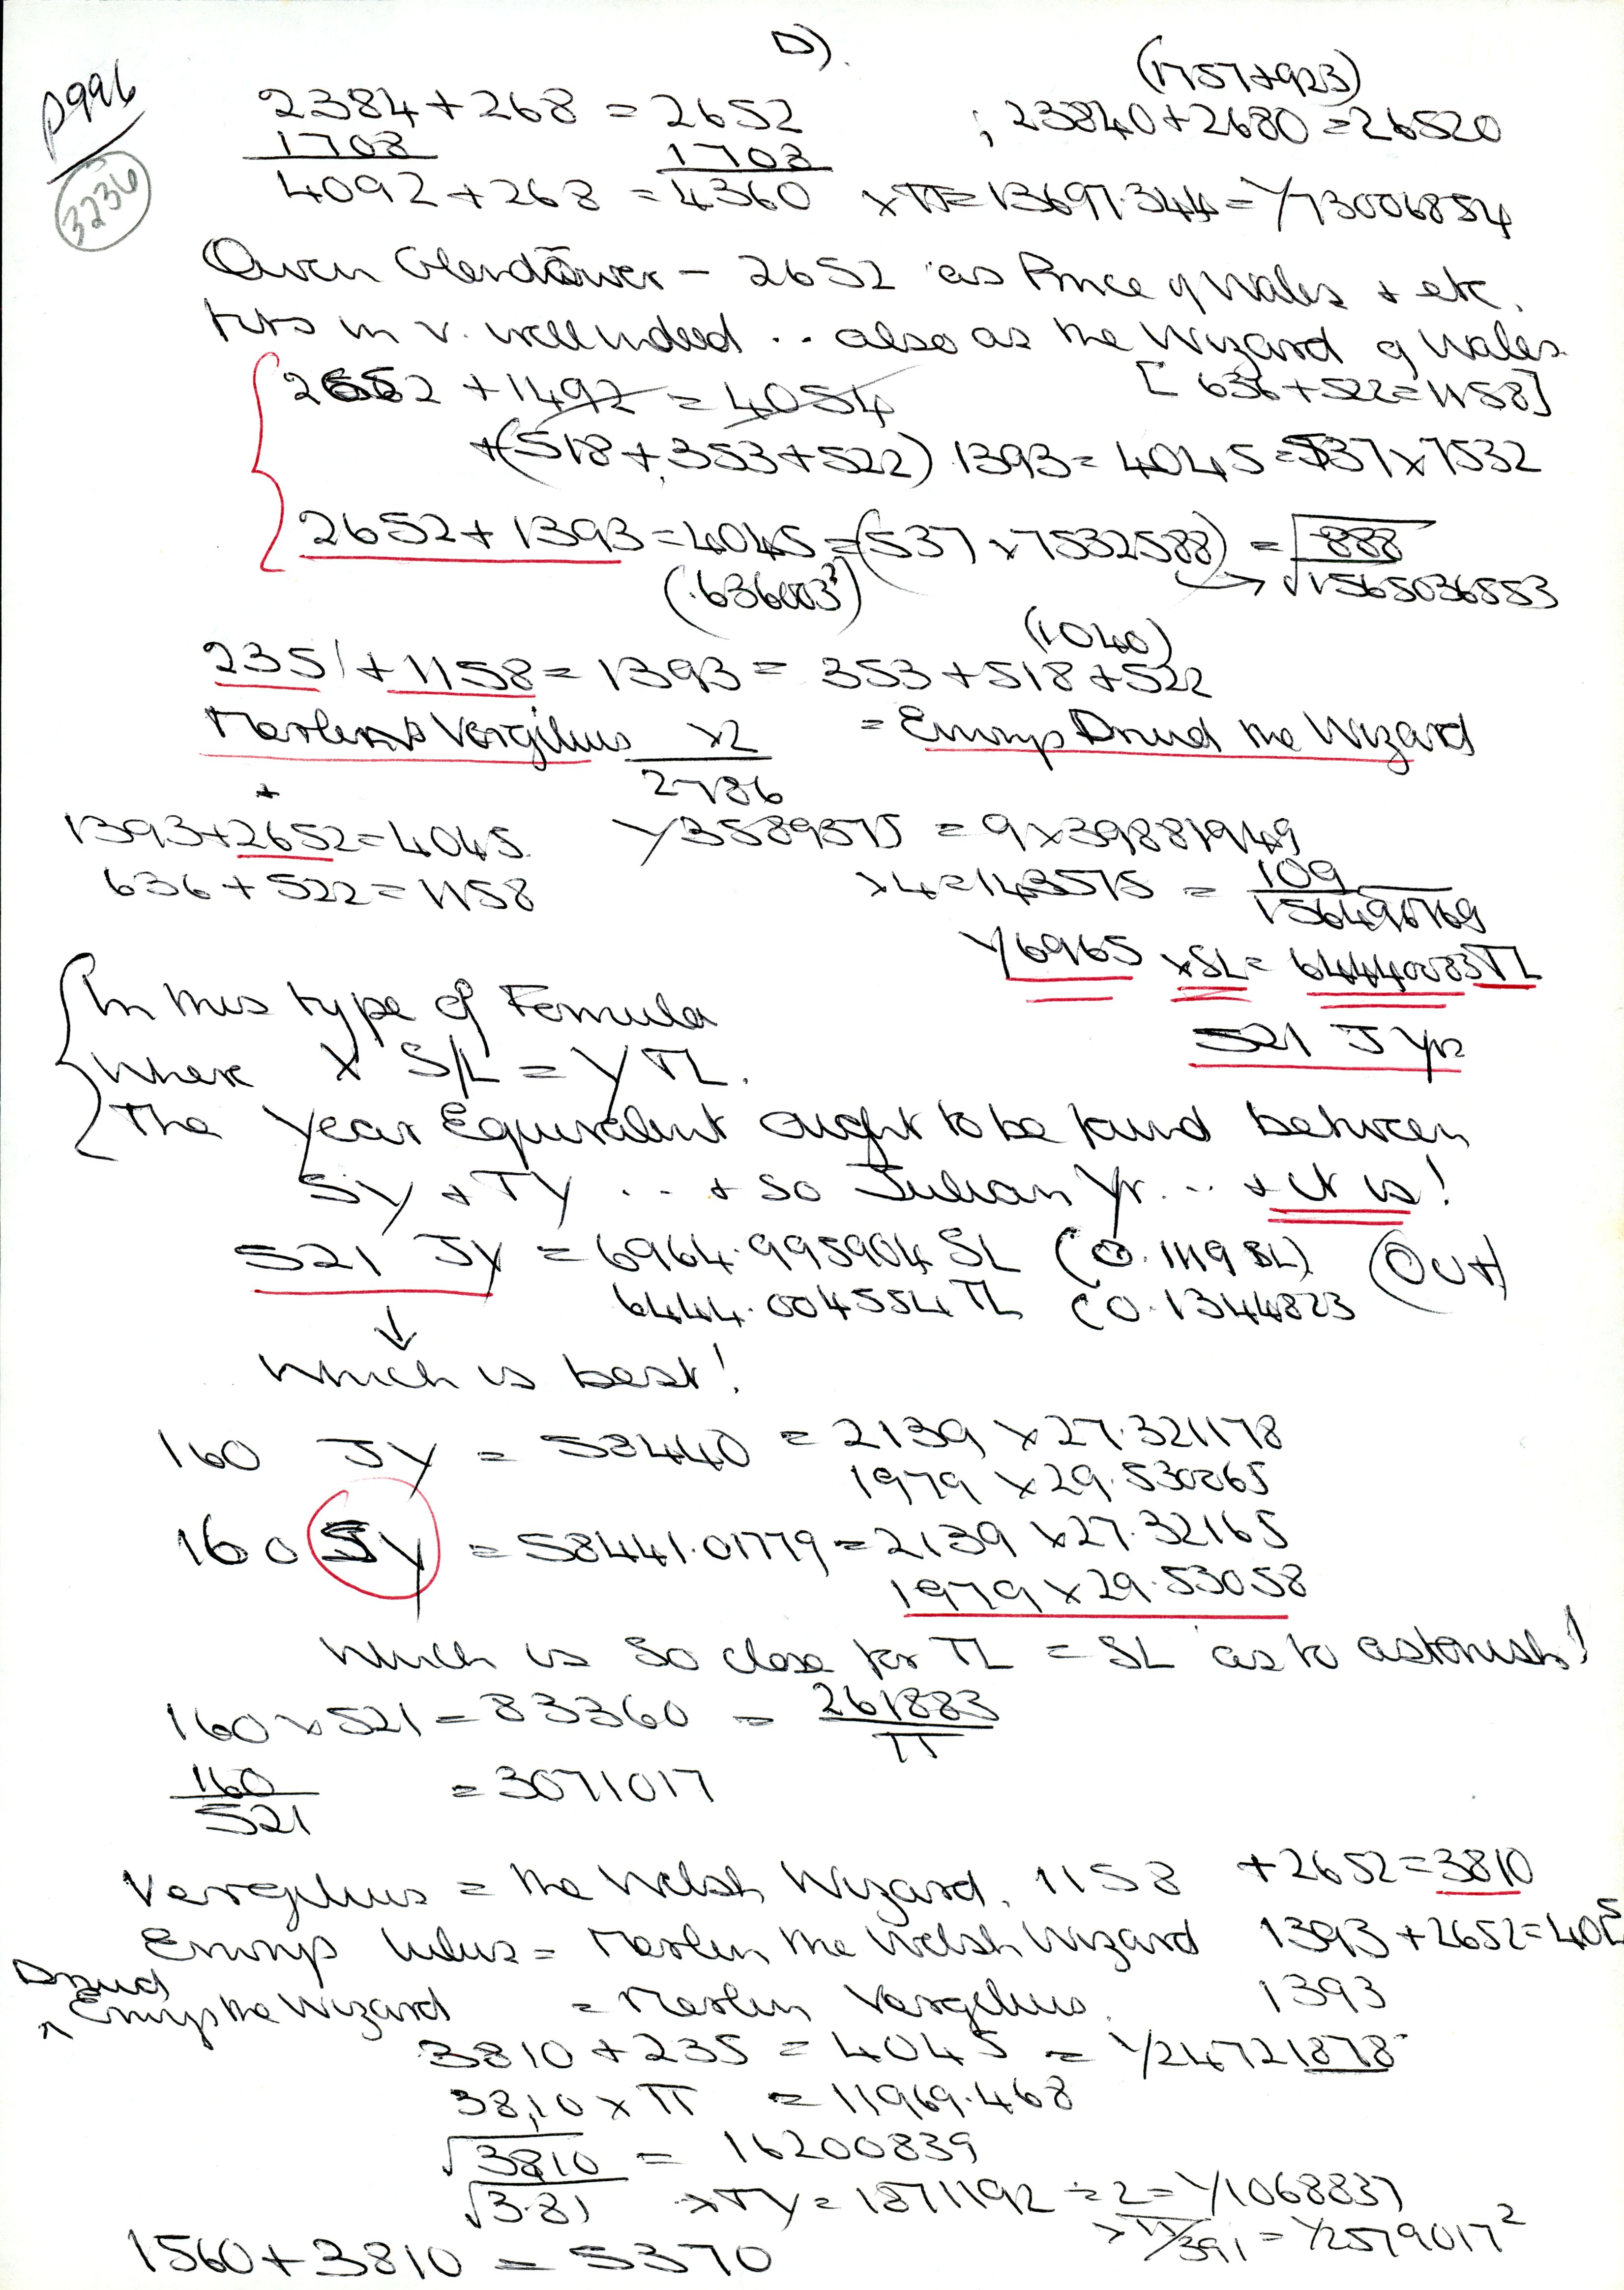 D).
p996
3236
(1757+923)
2384 + 268 = 2652 ; 23840+2680 = 26520
1708 1708
4092 + 268 = 4360 × π = 13697.344 = 1/73006854
Owen Glendower - 2652 as Prince of Wales + etc.
fits in v. well indeed .. also as the Wizard of Wales
2652 + 1492 = 4054 [636+522=1158]
+(518+353+522) 1393 = 4045 = 537×7532
2652 + 1393 = 4045 = (537 × 7532588) = √888
(.636003²) → √1565036553
(1040)
235 + 1158 = 1393 = 353 + 518 + 522
Merlin Vergilius ×2 = Emrys Druid the Wizard
2786
+
1393+2652=4045. 1/3589375 = 9×398819149
636 + 522 = 1158 ×4=143575 = 109
156490769
1/6965 ×SL = 64440083TL
521 J Yrs
In this type of Formula
Where X S/L = Y TL.
The Year Equivalent ought to be found between
SY + TY .. + so Julian Yr... + it is!
521 JY = 6964.995904 SL (0.1119 SL) (Out)
6444.004554 TL (0.1344823
↓
Which is best!
160 JY = 58440 = 2139 × 27.321178
1979 × 29.530065
160 SY = 58441.01779 = 2139 × 27.32165
1979 × 29.53058
Which is so close for TL = SL as to astonish!
160 × 521 = 83360 = 261883
π
160 = 3071017
521
Vergilius = the Welsh Wizard. 1158 + 2652 = 3810
Emrys Iulus = Merlin the Welsh Wizard 1393 + 2652 = 4045
Druid
^ Emrys the Wizard = Merlin Vergilius. 1393
3810 + 235 = 4045 = 1/24721878
3810 × π = 11969.468
√3810 = 16200839
√3.81 × TY = 1871192 ÷ 2 = 1/1068837
× π/391 = 1/2579017²
1560 + 3810 = 5370